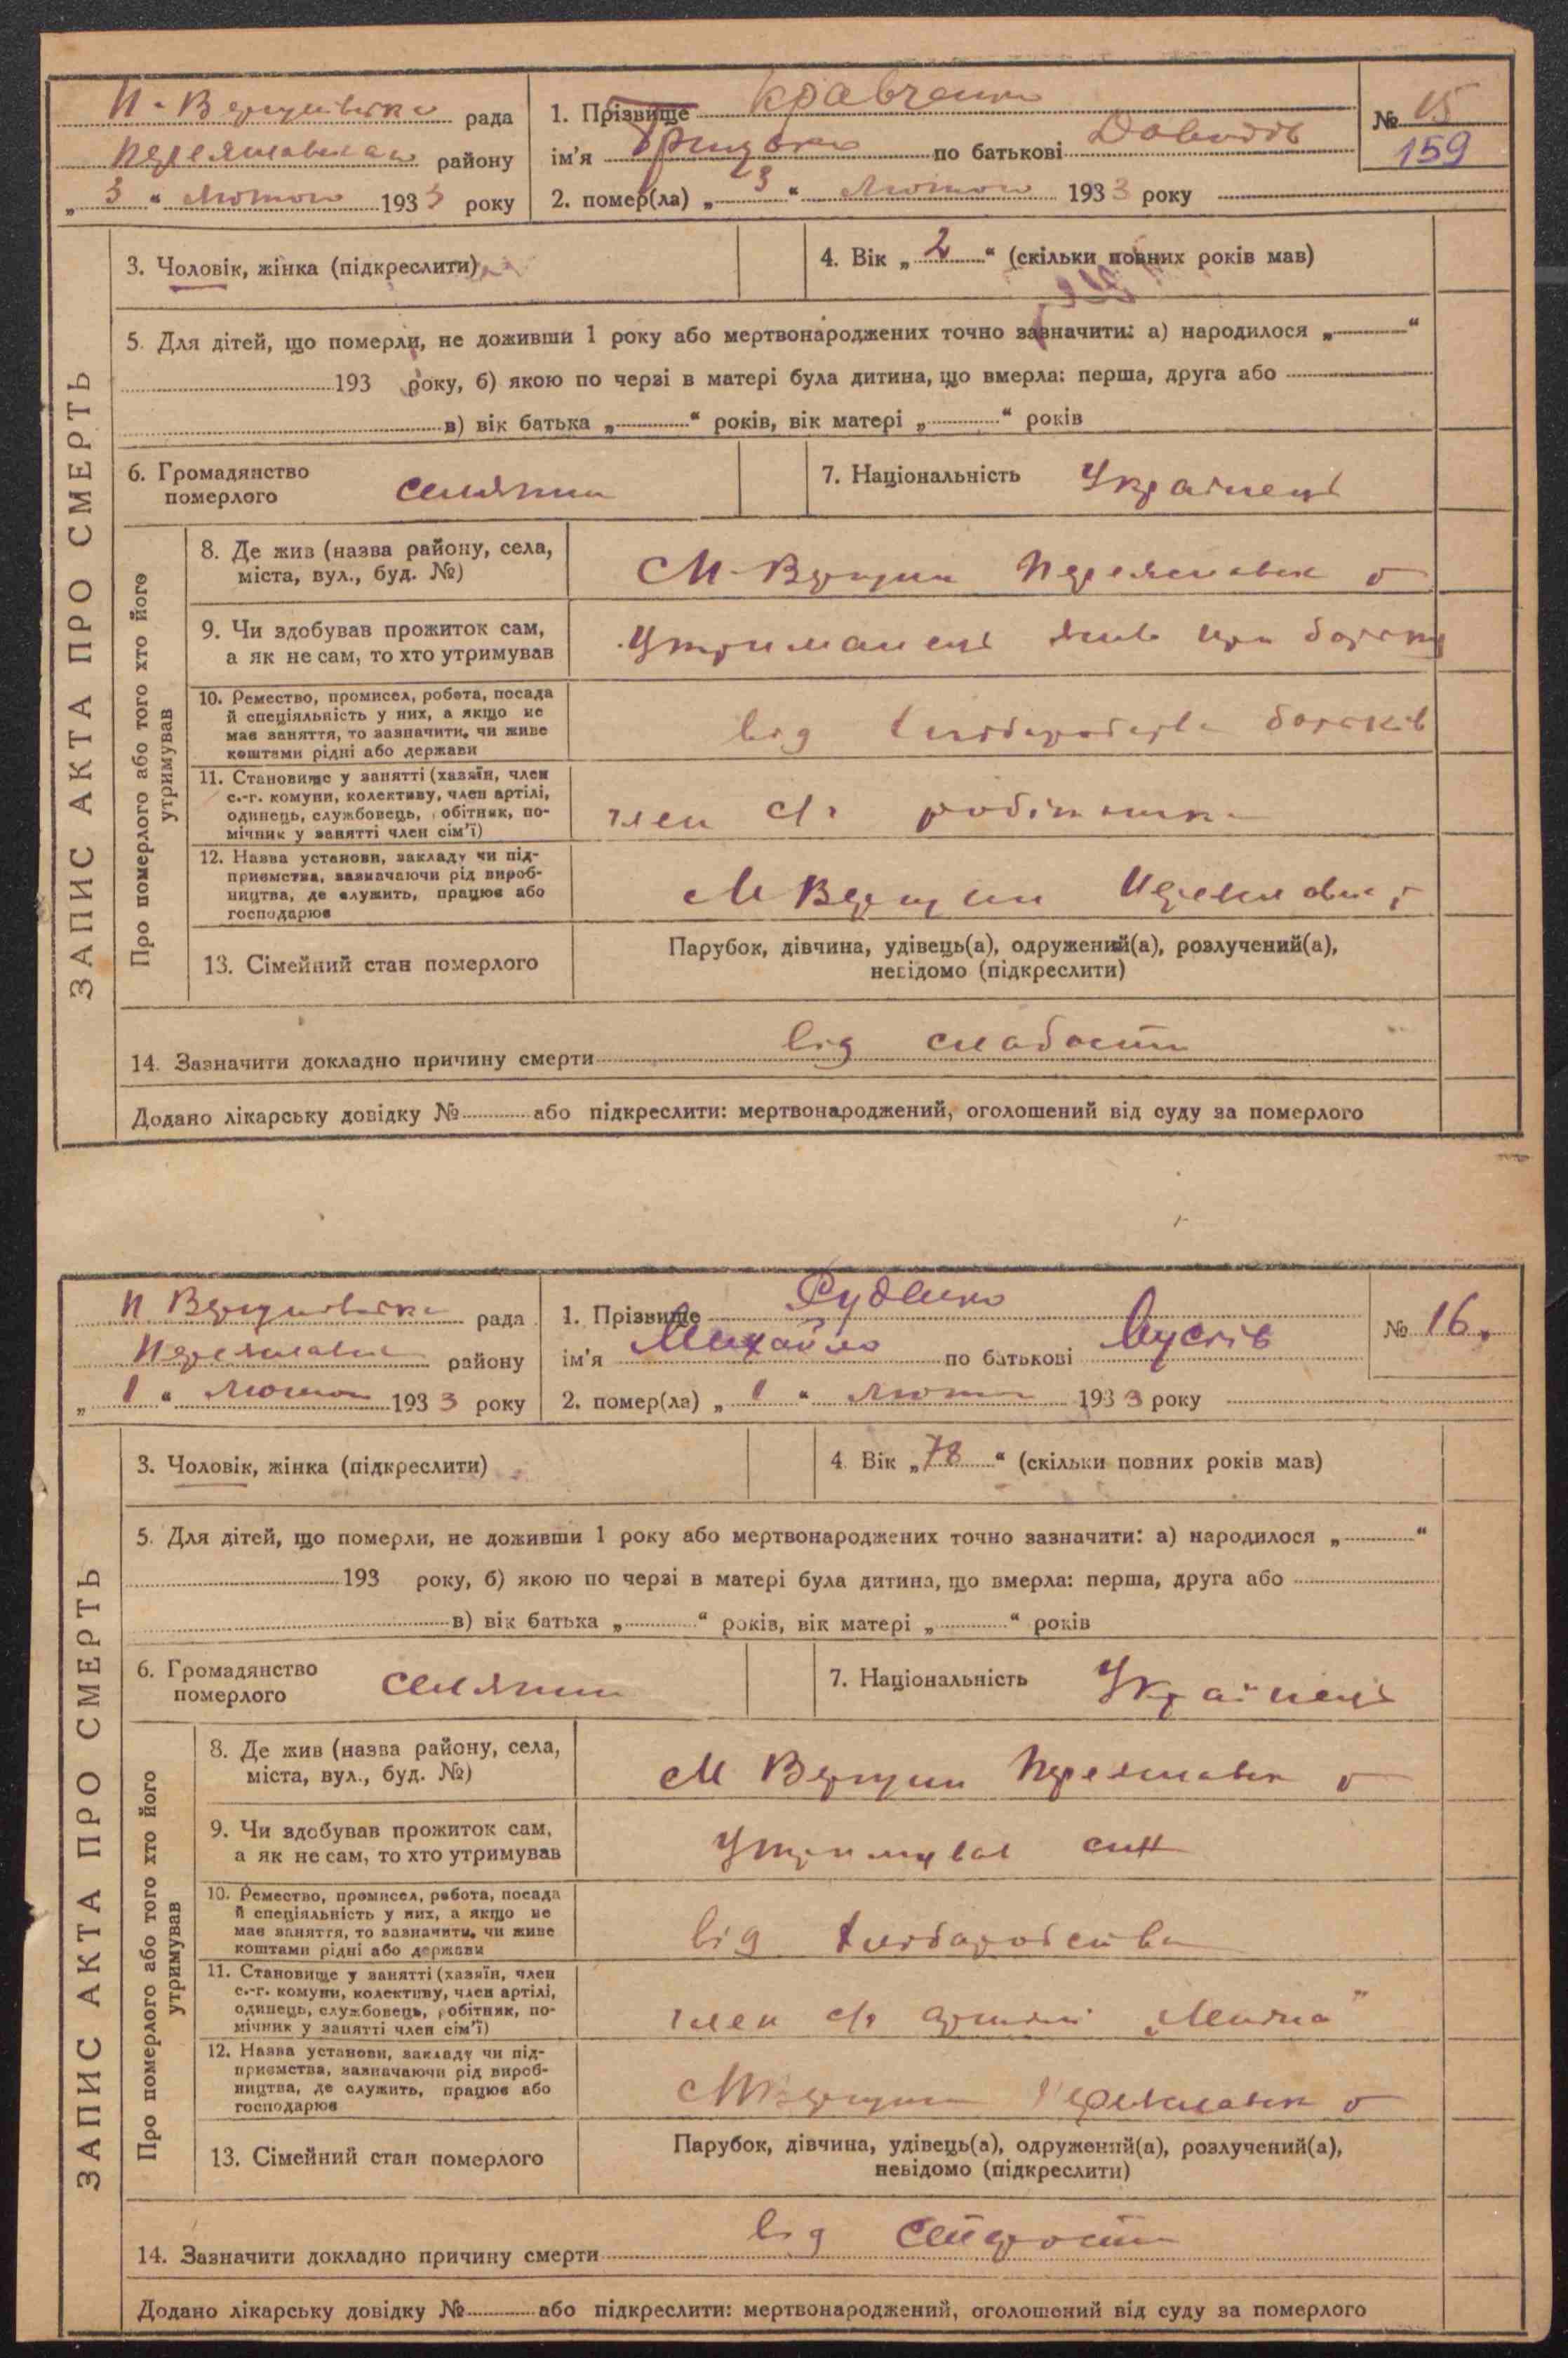 рада
району
„ 3 " лютого 1933 року
1. Прізвище Кравченко
ім'я Грицько по батькові
2. помер(ла) „ 3 " лютого 1933 року
№ 15
159
3. Чоловік, жінка (підкреслити)
4. Вік „ 2 " (скільки повних років мав)
5. Для дітей, що померли, не доживши 1 року або мертвонароджених точно зазначити: а) народилося „ "
193 року, б) якою по черзі в матері була дитина, що вмерла: перша, друга або
в) вік батька „ " років, вік матері „ " років
6. Громадянство
померлого селянин
7. Національність Українець
ЗАПИС АКТА ПРО СМЕРТЬ
Про померлого або того хто його
утримував
8. Де жив (назва району, села,
міста, вул., буд. №)
9. Чи здобував прожиток сам,
а як не сам, то хто утримував
Утриманець
10. Ремество, промисел, робота, посада
й спеціяльність у них, а якщо не
має заняття, то зазначити, чи живе
коштами рідні або держави
від батьків
11. Становище у занятті (хазяїн, член
с.-г. комуни, колективу, член артілі,
одинець, службовець, робітник, по-
мічник у занятті член сім'ї)
член с/г
12. Назва установи, закладу чи під-
приємства, зазначаючи рід вироб-
ництва, де служить, працює або
господарює
13. Сімейний стан померлого
Парубок, дівчина, удівець(а), одружений(а), розлучений(а),
невідомо (підкреслити)
14. Зазначити докладно причину смерти від слабости
Додано лікарську довідку № або підкреслити: мертвонароджений, оголошений від суду за померлого
рада
району
„ 1 " лютого 1933 року
1. Прізвище Руденко
ім'я Михайло по батькові
2. помер(ла) „ 1 " лютого 1933 року
№ 16.
3. Чоловік, жінка (підкреслити)
4. Вік „ 78 " (скільки повних років мав)
5. Для дітей, що померли, не доживши 1 року або мертвонароджених точно зазначити: а) народилося „ "
193 року, б) якою по черзі в матері була дитина, що вмерла: перша, друга або
в) вік батька „ " років, вік матері „ " років
6. Громадянство
померлого селянин
7. Національність Українець
ЗАПИС АКТА ПРО СМЕРТЬ
Про померлого або того хто його
утримував
8. Де жив (назва району, села,
міста, вул., буд. №)
9. Чи здобував прожиток сам,
а як не сам, то хто утримував
Утримував син
10. Ремество, промисел, робота, посада
й спеціяльність у них, а якщо не
має заняття, то зазначити, чи живе
коштами рідні або держави
від хліборобства
11. Становище у занятті (хазяїн, член
с.-г. комуни, колективу, член артілі,
одинець, службовець, робітник, по-
мічник у занятті член сім'ї)
член с/г артілі
12. Назва установи, закладу чи під-
приємства, зазначаючи рід вироб-
ництва, де служить, працює або
господарює
13. Сімейний стан померлого
Парубок, дівчина, удівець(а), одружений(а), розлучений(а),
невідомо (підкреслити)
14. Зазначити докладно причину смерти від старости
Додано лікарську довідку № або підкреслити: мертвонароджений, оголошений від суду за померлого